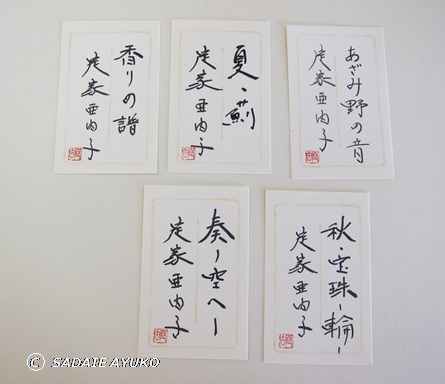 香りの譜
定家亜由子
夏・薊
定家亜由子
あざみ野の音
定家亜由子
奏ー空へー
定家亜由子
秋・宝珠ー輪ー
定家亜由子
Ⓒ SADAIE AYUKO